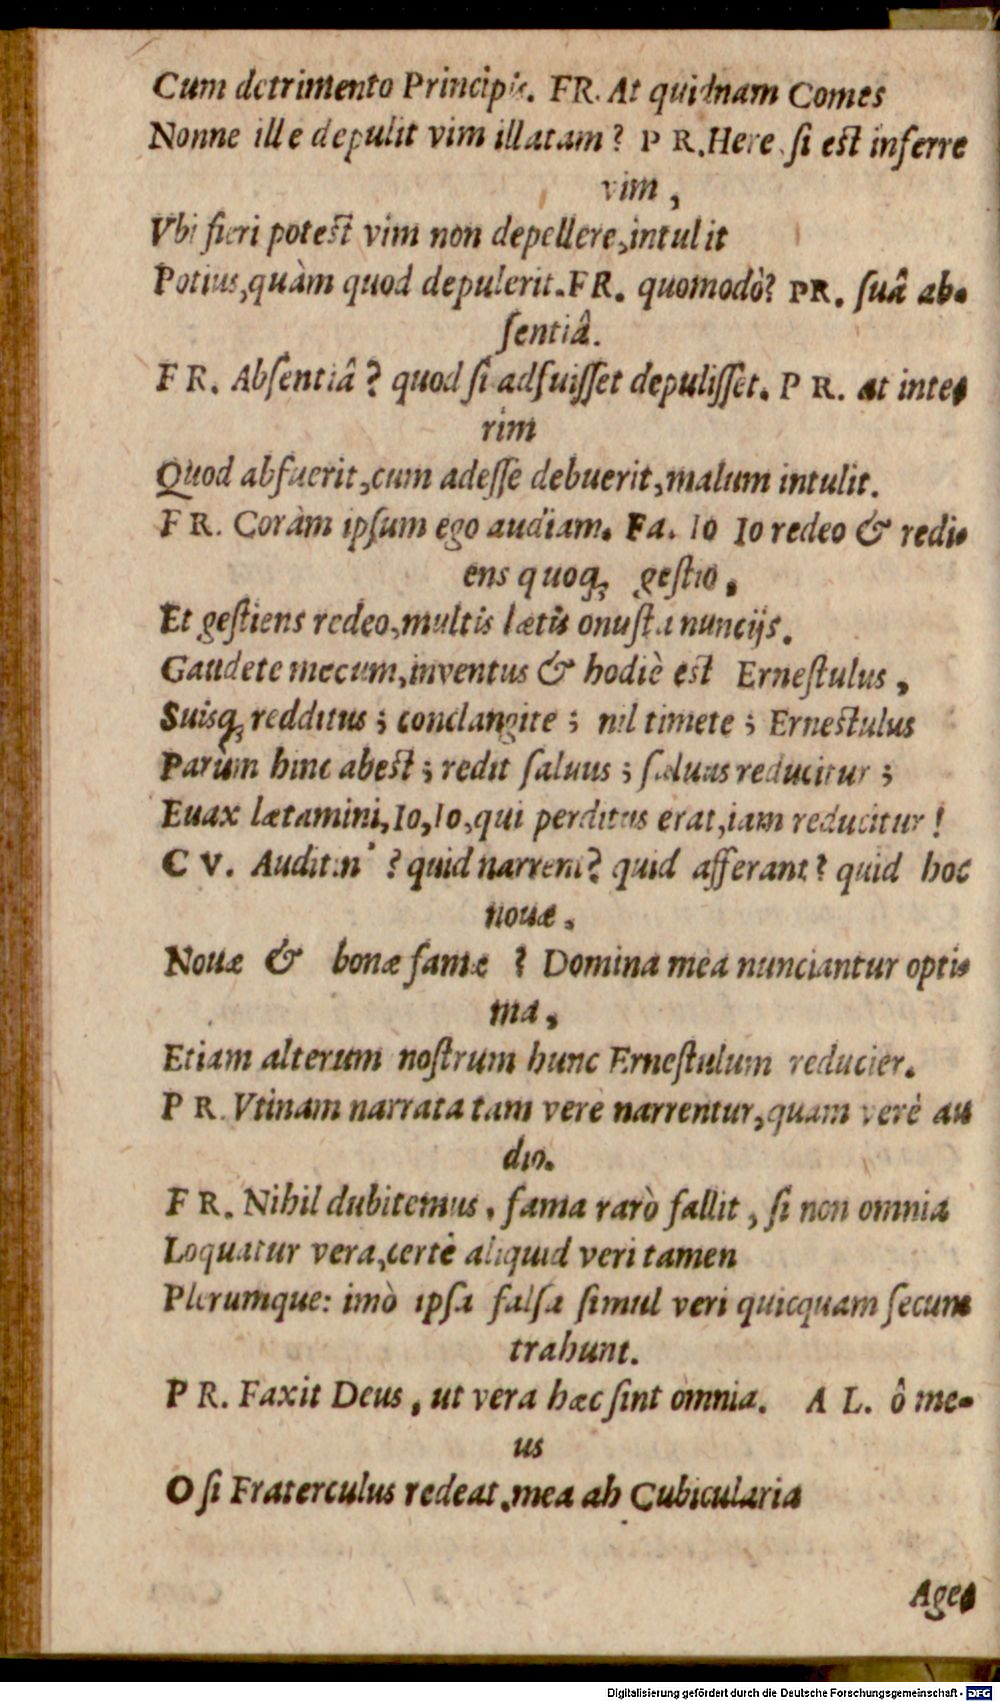 Cum detrimento Principis. FR. At quidnam Comes
Nonne ille depulit vim illatam? PR. Here, si est inferre
vim,
Vbi fieri potest vim non depellere, intulit
Potius, quàm quod depulerit. FR. quomodò? PR. suâ ab-
sentiâ.
FR. Absentiâ? quod si adfuisset depulisset. PR. at inte-
rim
Quod abfuerit, cum adesse debuerit, malum intulit.
FR. Coràm ipsum ego audiam. Fa. Io Io redeo & redi-
ens quoq; gestio,
Et gestiens redeo, multis lætis onusta nuncijs.
Gaudete mecum, inventus & hodiè est Ernestulus,
Suisq; redditus; conclangite; nil timete; Ernestulus
Parùm hinc abest; redit saluus; saluus reducitur;
Euax lætamini, Io, Io, qui perditus erat, iam reducitur!
CV. Auditin'? quid narrem? quid afferant? quid hoc
nouæ.
Nouæ & bonæ famæ? Domina mea nunciantur opti-
ma,
Etiam alterum nostrum hunc Ernestulum reducier.
PR. Vtinam narrata tam verè narrentur, quam verè au
dio.
FR. Nihil dubitemus, fama rarò fallit, si non omnia
Loquatur vera, certè aliquid veri tamen
Plerumque: imò ipsa falsa simul veri quicquam secum
trahunt.
PR. Faxit Deus, ut vera hæc sint omnia. AL. ô me-
us
O si Fraterculus redeat, mea ah Cubicularia
Age-
Digitalisierung gefördert durch die Deutsche Forschungsgemeinschaft - DFG